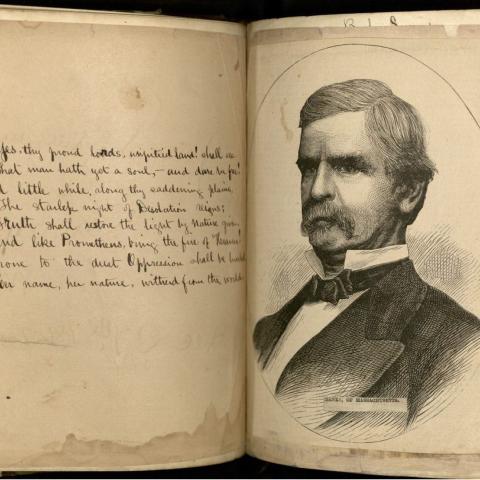 Yes. thy proud lords, unpitied land! shall see
that man hath yet a soul, — and dare be free!
little while, along thy saddening plains,
The starless night of Desolation reigns;
Truth shall restore the light by nature given
And like Prometheus, bring the fire of Heaven!
Prone to the dust Oppression shall be
her name, her nature, witherd from the world
BANKS, OF MASSACHUSETTS.